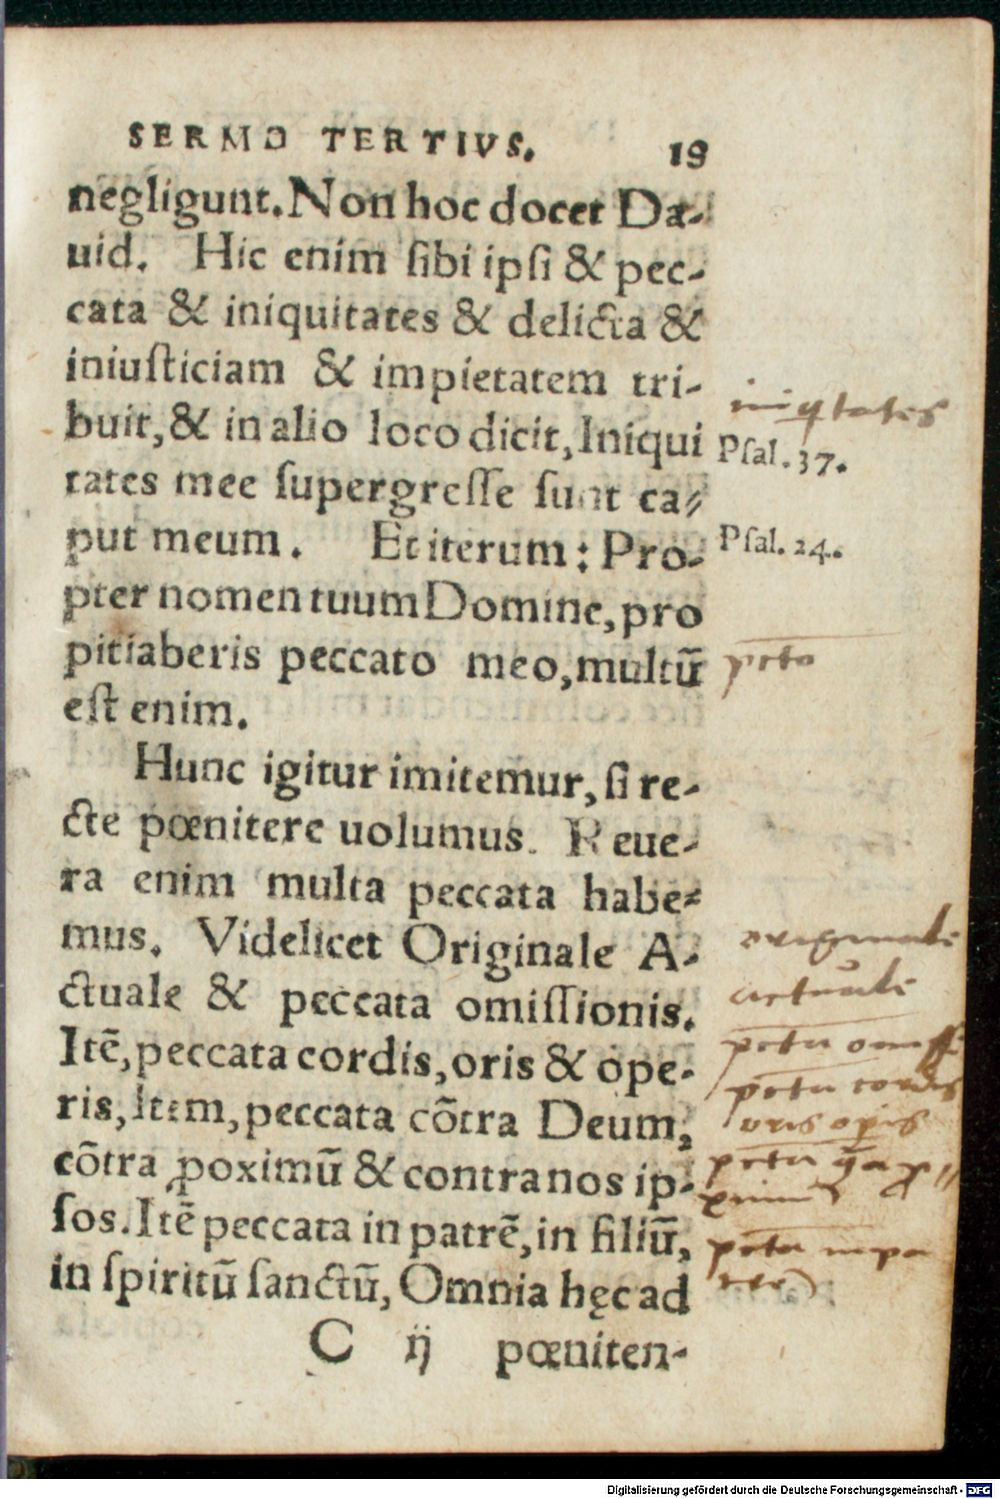 SERMO TERTIVS. 19
negligunt. Non hoc docet Da-
uid. Hic enim ſibi ipſi & pec-
cata & iniquitates & delicta &
iniuſticiam & impietatem tri-
buit, & in alio loco dicit, Iniqui
tates mee ſupergreſſe ſunt ca-
put meum. Et iterum: Pro-
pter nomen tuum Domine, pro
pitiaberis peccato meo, multū
eſt enim.
Hunc igitur imitemur, ſi re-
cte pœnitere uolumus. Reue-
ra enim multa peccata habe-
mus. Videlicet Originale A-
ctuale & peccata omiſſionis.
Itē, peccata cordis, oris & ope-
ris, Item, peccata cōtra Deum,
cōtra ꝓoximū & contra nos ip-
ſos. Itē peccata in patrē, in filiū,
in ſpiritū ſanctū, Omnia hęc ad
C ij pœniten-
iniqtates
Pſal. 37.
Pſal. 24.
pcto
originale
actuale
pcta omiſſi
pcta cordis
oris opis
pcta
pcta in pa
Digitalisierung gefördert durch die Deutsche Forschungsgemeinschaft - DFG